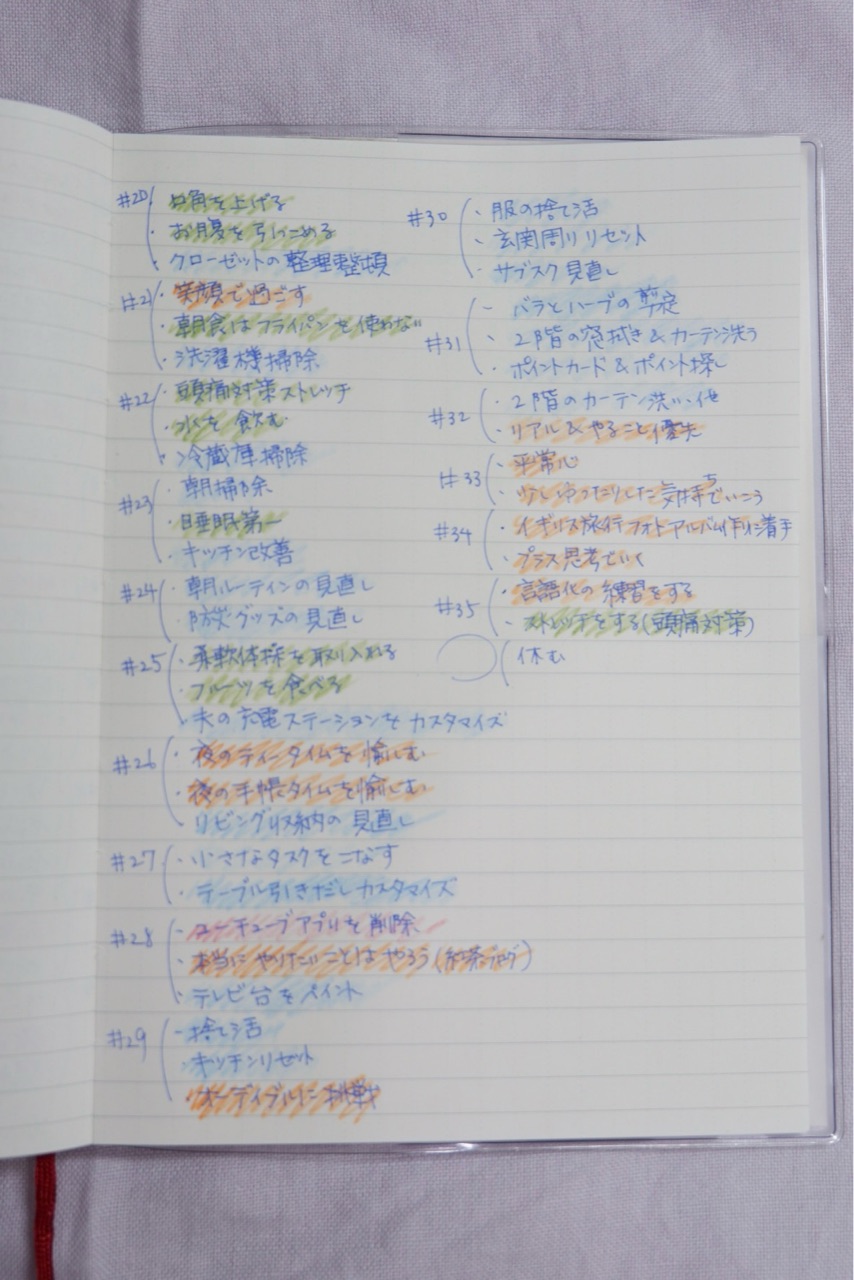 #20 ・口角を上げる
・お腹を引っこめる
・クローゼットの整理整頓
#21 ・笑顔で過ごす
・朝食はフライパンを使わない
・洗濯機掃除
#22 ・頭痛対策ストレッチ
・水を飲む
・冷蔵庫掃除
#23 ・朝掃除
・睡眠第一
・キッチン改善
#24 ・朝ルーティンの見直し
・防災グッズの見直し
#25 ・柔軟体操を取り入れる
・フルーツを食べる
・夫の充電ステーションをカスタマイズ
#26 ・夜のティータイムを愉しむ
・夜の手帳タイムを愉しむ
・リビング収納の見直し
#27 ・小さなタスクをこなす
・テーブル引きだしカスタマイズ
#28 ・ユーチューブアプリを削除
・本当にやりたいことはやろう(紅茶ブログ)
・テレビ台をペイント
#29 ・捨て活
・キッチンリセット
オーディブルに挑戦
#30 ・服の捨て活
・玄関周りリセット
・サブスク見直し
#31 ・バラとハーブの剪定
・2階の窓拭き&カーテン洗う
・ポイントカード&ポイント探し
#32 ・2階のカーテン洗い・他
・リアル&やること優先
#33 ・平常心
・少しゆったりした気持ちでいこう
#34 ・イギリス旅行フォトアルバム作りに着手
・プラス思考でいく
#35 ・言語化の練習をする
・ストレッチをする(頭痛対策)
休む